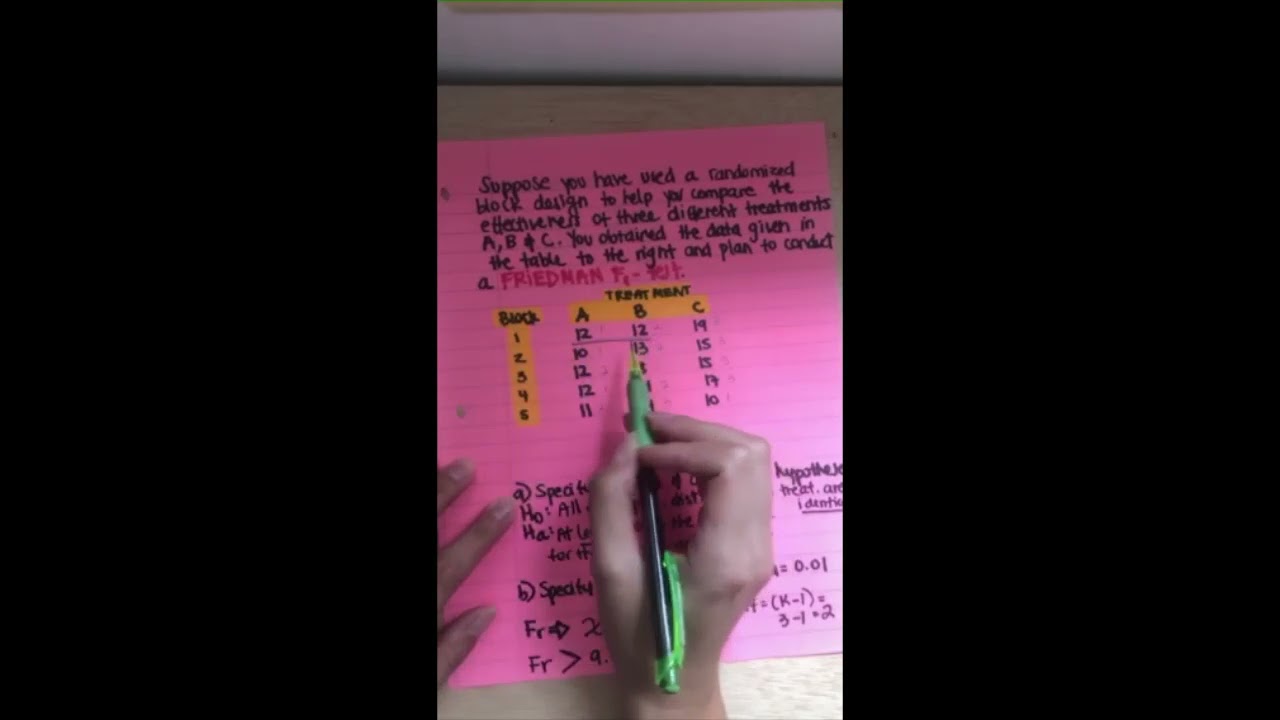 Suppose you have used a randomized
block design to help you compare the
effectiveness of three different treatments
A, B & C. You obtained the data given in
the table to the right and plan to conduct
a FRIEDMAN Fr - test.
TREATMENT
Block A B C
1 12 12 19
2 10 13 15
3 12 15
4 12 17
5 11 10
a) Specify & hypothese
Ho: All dist treat. are
identic
Ha: At le the
for th
b) Specify = 0.01
Fr ⇒ χ = (K-1) =
3-1 = 2
Fr > 9.